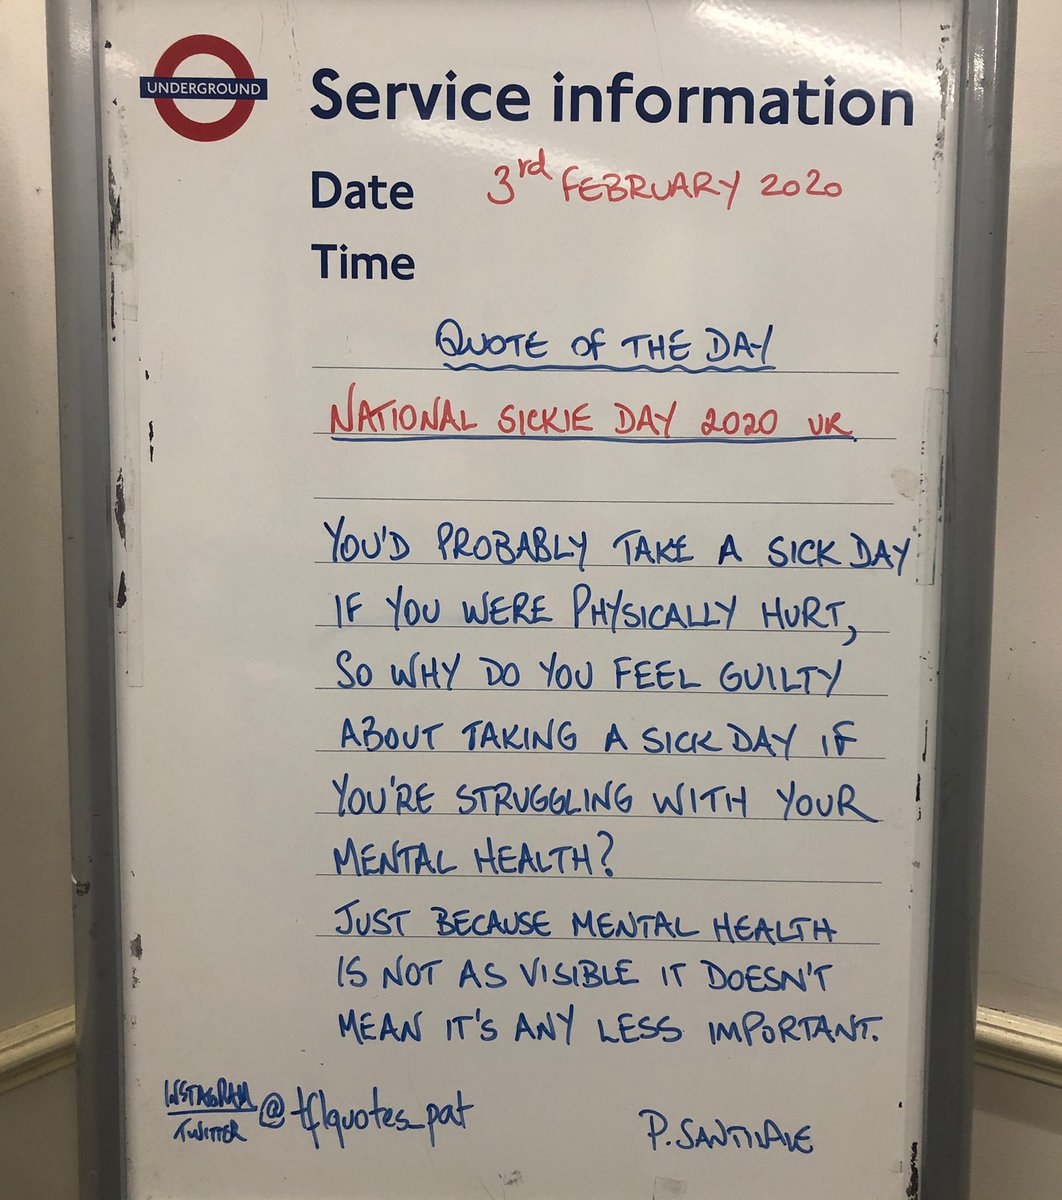 UNDERGROUND
Service information
Date 3rd FEBRUARY 2020
Time
QUOTE OF THE DAY
NATIONAL SICKIE DAY 2020 UK
YOU'D PROBABLY TAKE A SICK DAY
IF YOU WERE PHYSICALLY HURT,
SO WHY DO YOU FEEL GUILTY
ABOUT TAKING A SICK DAY IF
YOU'RE STRUGGLING WITH YOUR
MENTAL HEALTH?
JUST BECAUSE MENTAL HEALTH
IS NOT AS VISIBLE IT DOESN'T
MEAN IT'S ANY LESS IMPORTANT.
INSTAGRAM
TWITTER
@tflquotes_pat
P.